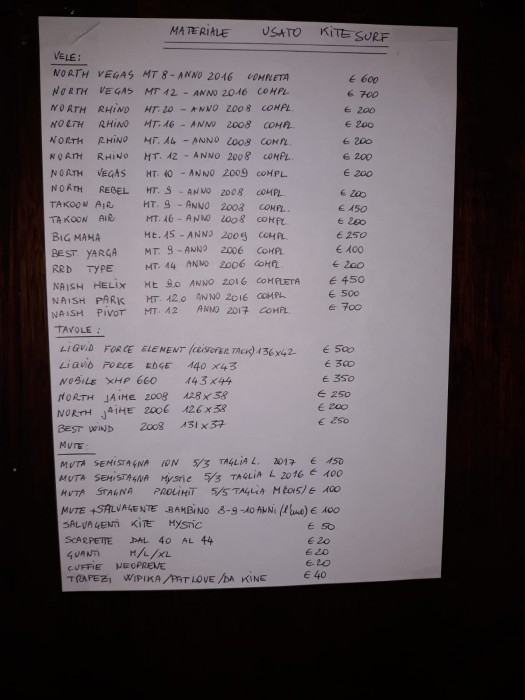 MATERIALE USATO KITE SURF
VELE:
NORTH VEGAS MT 8 - ANNO 2016 COMPLETA € 600
NORTH VEGAS MT 12 - ANNO 2016 COMPL. € 700
NORTH RHINO MT. 20 - ANNO 2008 COMPL. € 200
NORTH RHINO MT. 16 - ANNO 2008 COMPL. € 200
NORTH RHINO MT. 14 - ANNO 2008 COMPL. € 200
NORTH RHINO MT. 12 - ANNO 2008 COMPL. € 200
NORTH VEGAS MT. 10 - ANNO 2009 COMPL € 200
NORTH REBEL MT. 9 - ANNO 2008 COMPL. € 200
TAKOON AIR MT. 9 - ANNO 2008 COMPL. € 150
TAKOON AIR MT. 16 - ANNO 2008 COMPL. € 200
BIG MAMA Mt. 15 - ANNO 2009 COMPL € 250
BEST YARGA MT. 9 - ANNO 2006 COMPL € 100
RRD TYPE MT. 14 ANNO 2006 COMPL. € 200
NAISH HELIX Mt 9.0 ANNO 2016 COMPLETA € 450
NAISH PARK MT. 12.0 ANNO 2016 COMPL € 500
NAISH PIVOT MT. 12 ANNO 2017 COMPL. € 700
TAVOLE:
LIQUID FORCE ELEMENT (CRISTOFER TACK) 136x42 € 500
LIQUID FORCE EDGE 140 x43 € 300
NOBILE XHP 660 143x44 € 350
NORTH JAIME 2008 128x38 € 250
NORTH JAIME 2006 126x38 € 200
BEST WIND 2008 131x37 € 250
MUTE:
MUTA SEMISTAGNA ION 5/3 TAGLIA L. 2017 € 150
MUTA SEMISTAGNA Mystic 5/3 TAGLIA L 2016 € 100
MUTA STAGNA PROLIMIT 5/5 TAGLIA M (2015) € 100
MUTE + SALVAGENTE BAMBINO 8-9-10 ANNI (l'uno) € 100
SALVAGENTI KITE MYSTIC € 50
SCARPETTE DAL 40 AL 44 € 20
GUANTI M/L/XL € 20
CUFFIE NEOPRENE € 20
TRAPEZI WIPIKA/PAT LOVE/DA KINE € 40